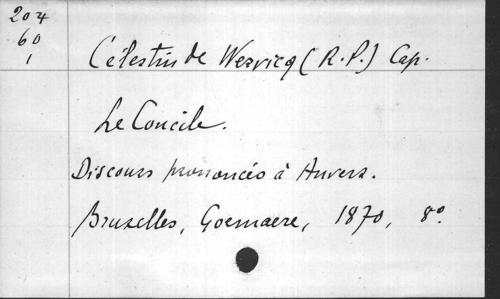 204
60
1
Célestin de Wervicq (R.P.) Cap.
Le Concile.
Discours prononcés à Anvers.
Bruxelles, Goemaere, 1870, 8º